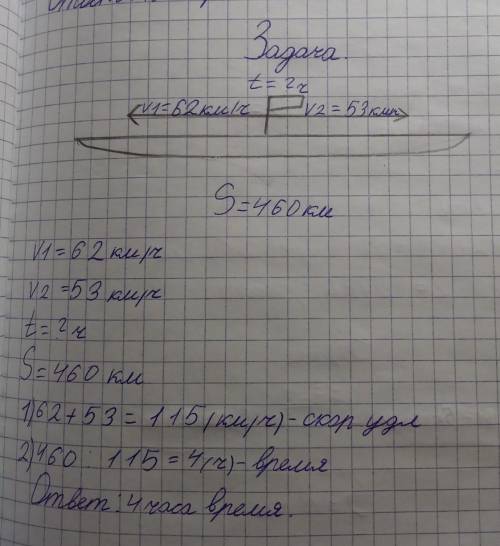 Задача.
t = ? ч
V1=62 км/ч V2 = 53 км/ч
S=460 км
V1=62 км/ч
V2=53 км/ч
t = ? ч
S=460 км
1) 62 + 53 = 115 (км/ч) - скор удл
2) 460 : 115 = 4 (ч) - время
Ответ: 4 часа время.